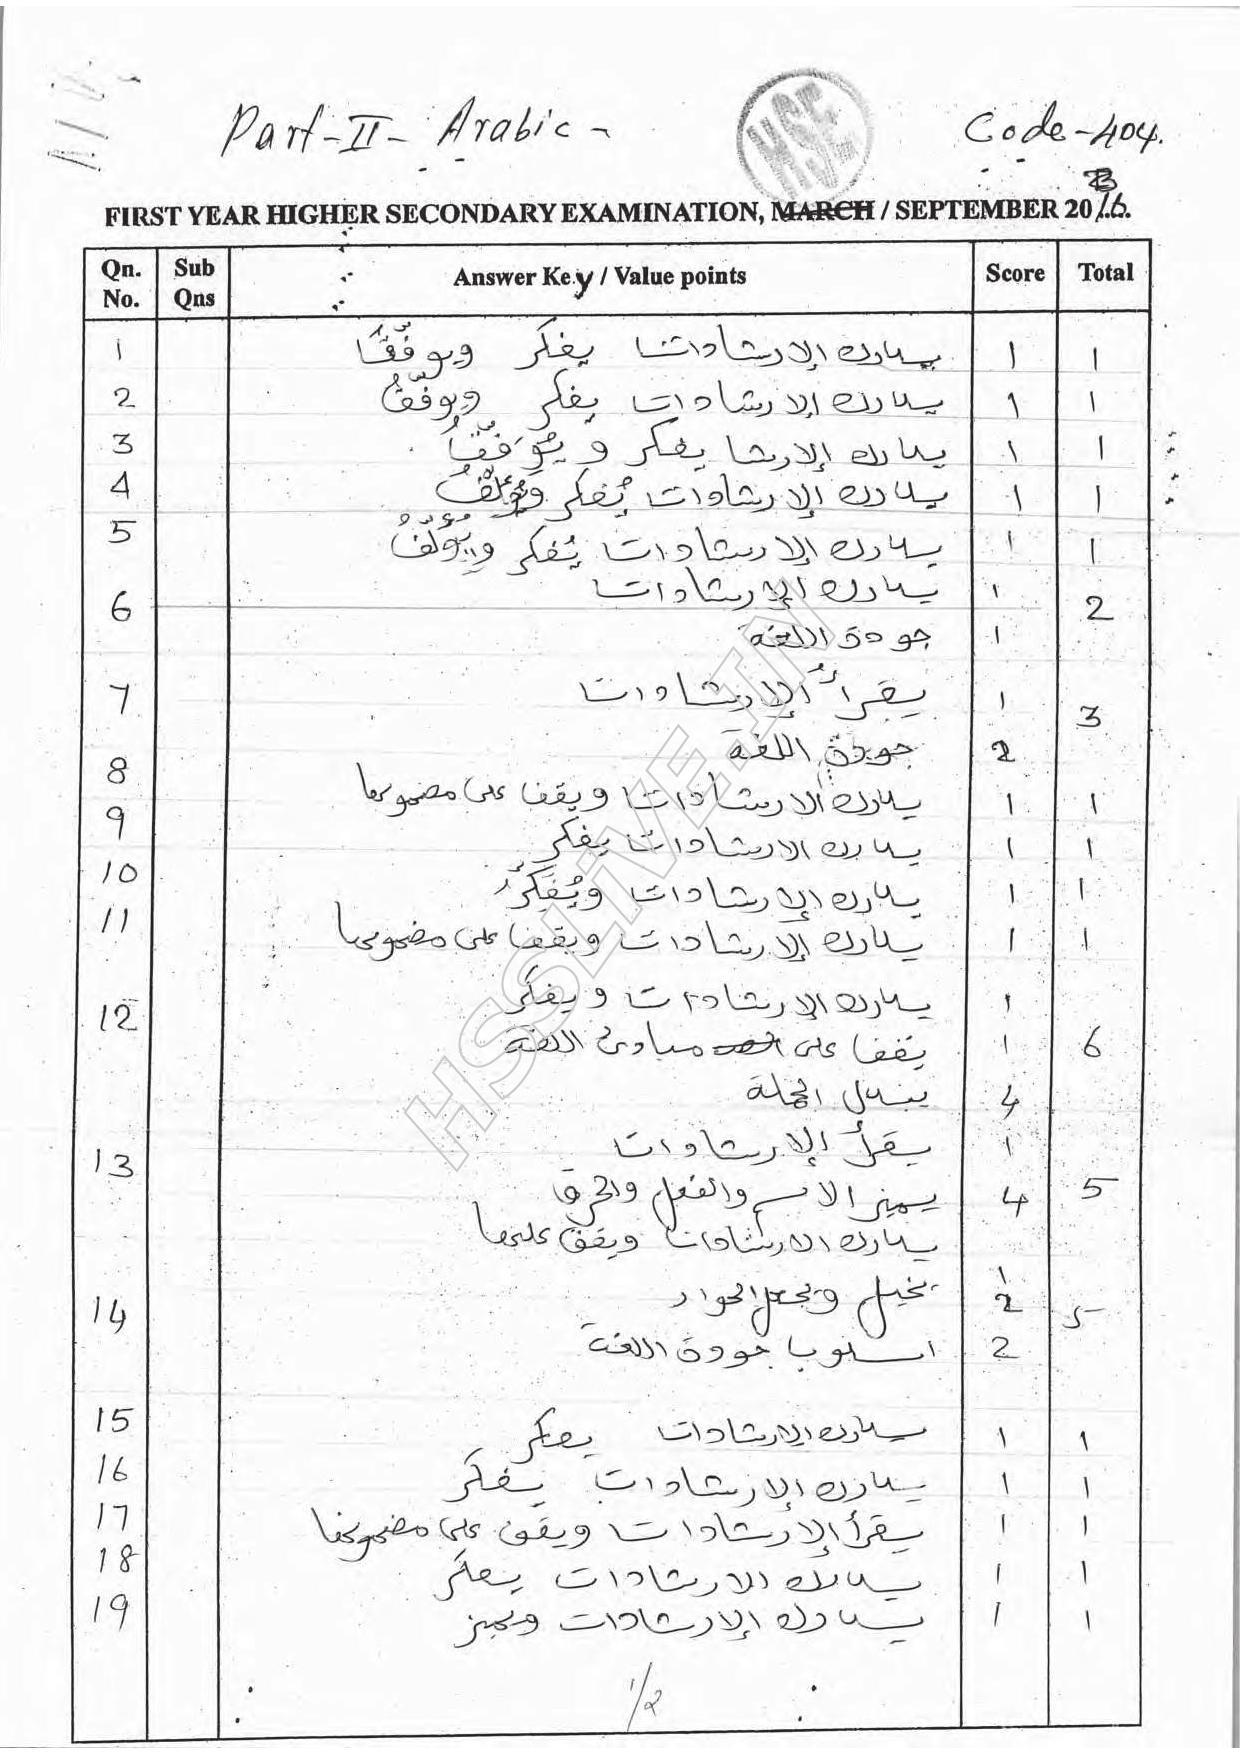 Part-II- Arabic -
HSE
Code-404.
FIRST YEAR HIGHER SECONDARY EXAMINATION, MARCH / SEPTEMBER 2016.
Qn. No. Sub Qns Answer Key / Value points Score Total
1 يدرك الإرشادات يفكر 1 1
2 يدرك الإرشادات يفكر 1 1
3 يدرك الإرشا يفكر و 1 1
4 يدرك الإرشادات يُفكر 1 1
5 يدرك الإرشادات يُفكر 1 1
6 يدرك الإرشادات 1 2
جودة اللغة 1
7 يقرأ الإرشادات 1 3
جودة اللغة 2
8 يدرك الارشادات ويقف على مضمونها 1 1
9 يدرك الارشادات يفكر 1 1
10 يدرك الإرشادات ويُفَكِّرُ 1 1
11 يدرك الإرشادات ويقف على مضمونها 1 1
12 يدرك الإرشادات ويفكر 1 6
يقف على مبادئ اللغة 1
يبدل الجملة 4
13 يقرأ الإرشادات 1 5
يميز الاسم والفعل والحرف 4
يدرك الارشادات ويقف عليها 1
14 تخيل ويجعل الحوار 2 5
اسلوب جودة اللغة 2
15 يدرك الإرشادات يفكر 1 1
16 يدرك الإرشادات يفكر 1 1
17 يقرأ الإرشادات ويقف على مضمونها 1 1
18 يدرك الارشادات يفكر 1 1
19 يدرك الإرشادات ويميز 1 1
1/2
HSSLIVE.IN